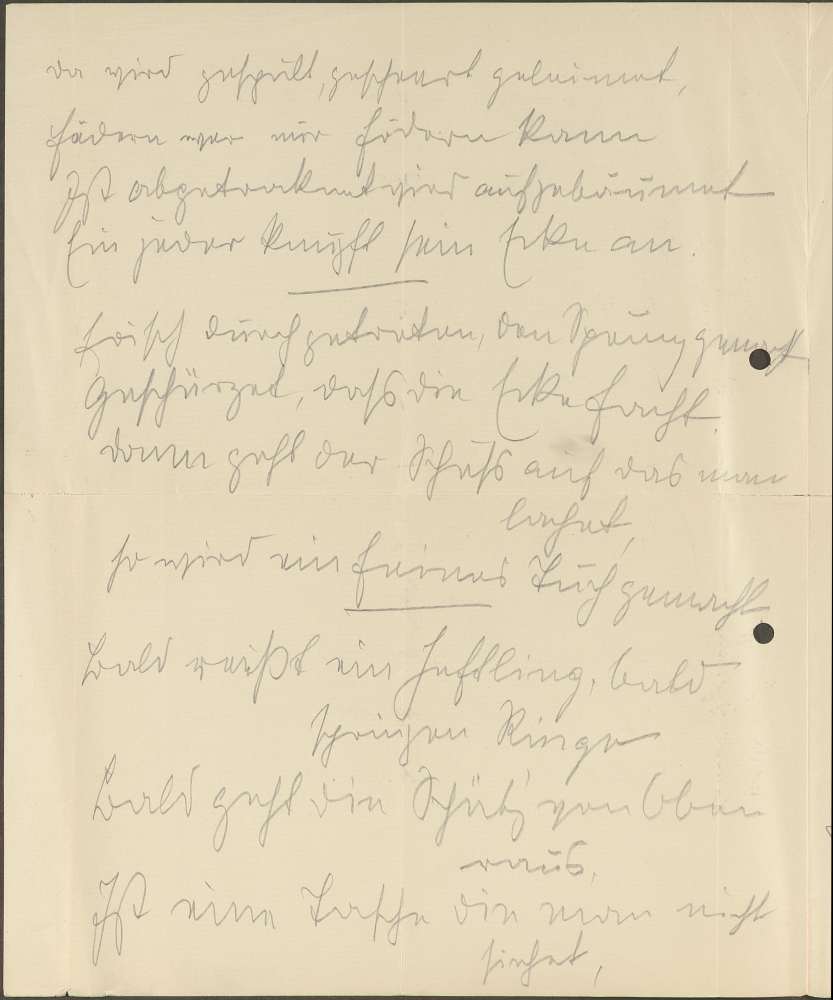 da wird gespült, geschmart geleimet,
fädern wer nur födern kann
Ist abgetroknet wird aufgebäumet
Ein jeder knüpft sein Ecke an.
frisch durchgetreten, den Sprung gemacht
Geschürzet, dass die Ecke facht.
dann geht der Schuss auf das man
lachet,
so wird ein feines Tuch gemacht
Bald reißt ein Heftling, bald
springen Ringe
Bald geht die Schütz von Oben
raus,
Ist eine Tasche die man nicht
siehet,